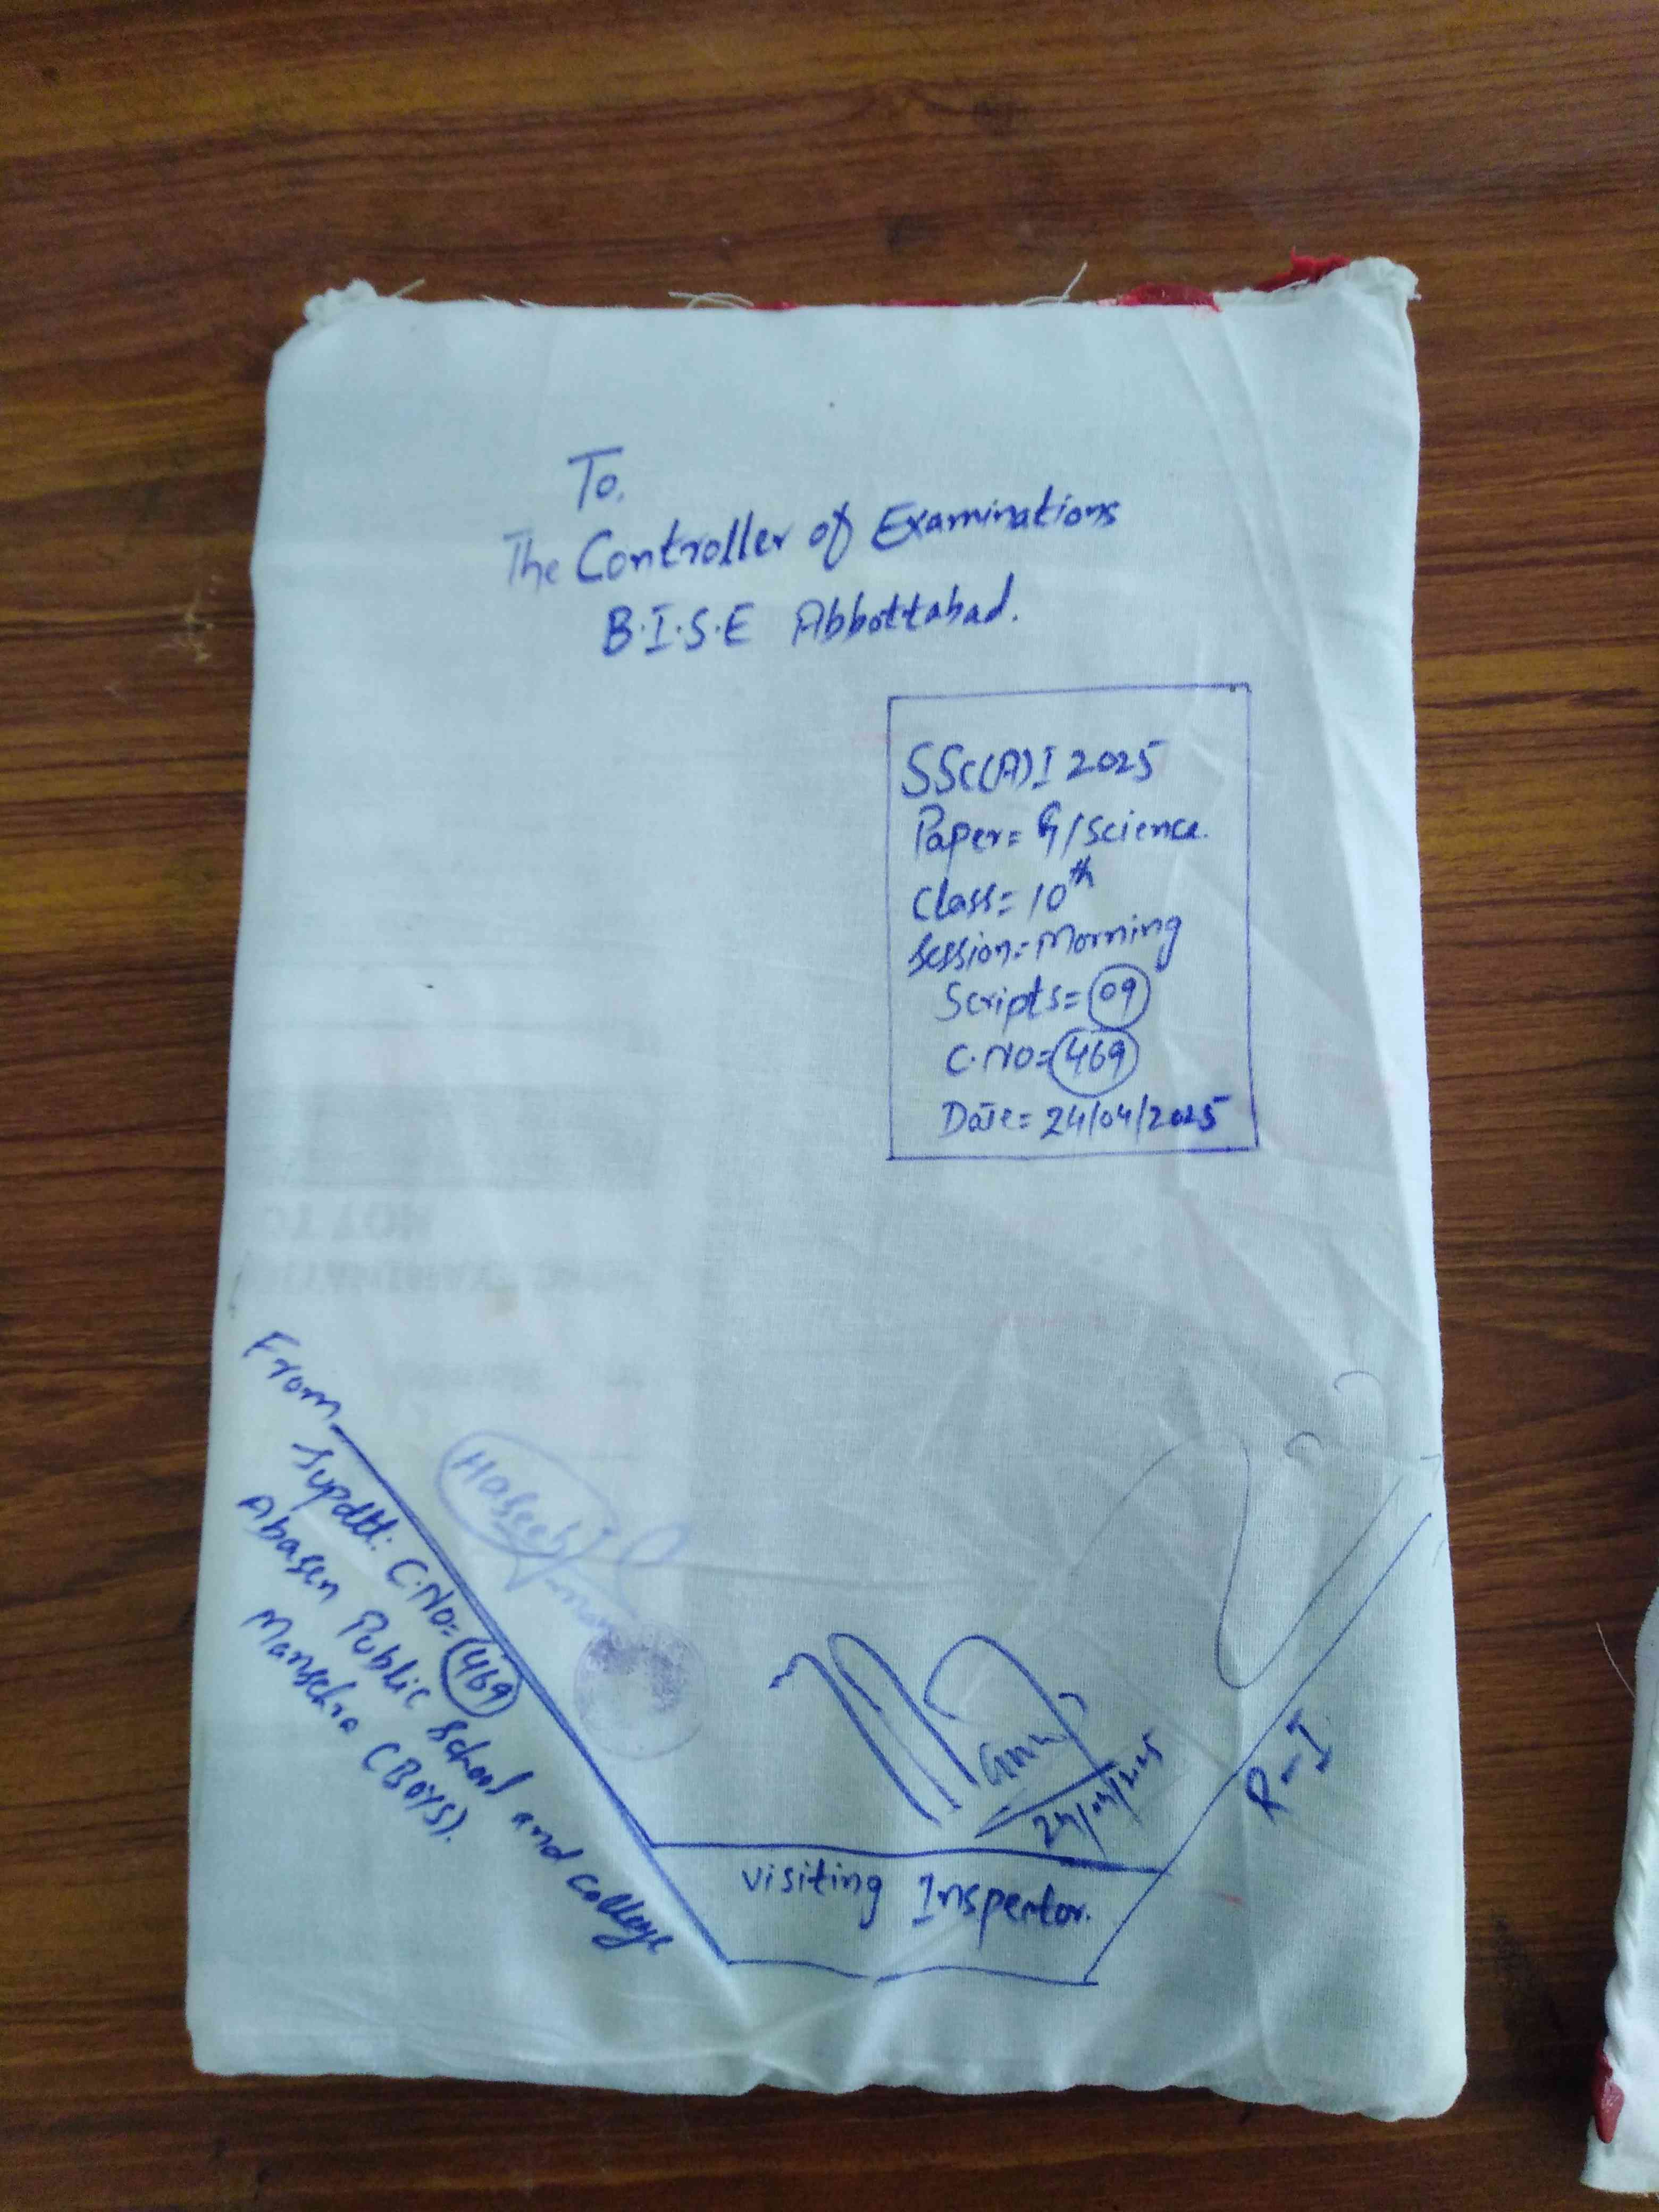 To,
The Controller of Examinations
B.I.S.E Abbottabad.
SSC(A)I 2025
Paper= G/Science.
Class= 10th
Session= Morning
Scripts= 09
C.No= 469
Date= 24/04/2025
From
Supdtt: C.No= 469
Abasen Public School and College
Mansehra (Boys).
Haseeb
24/04/2025
Visiting Inspector.
R-I
NOT TO